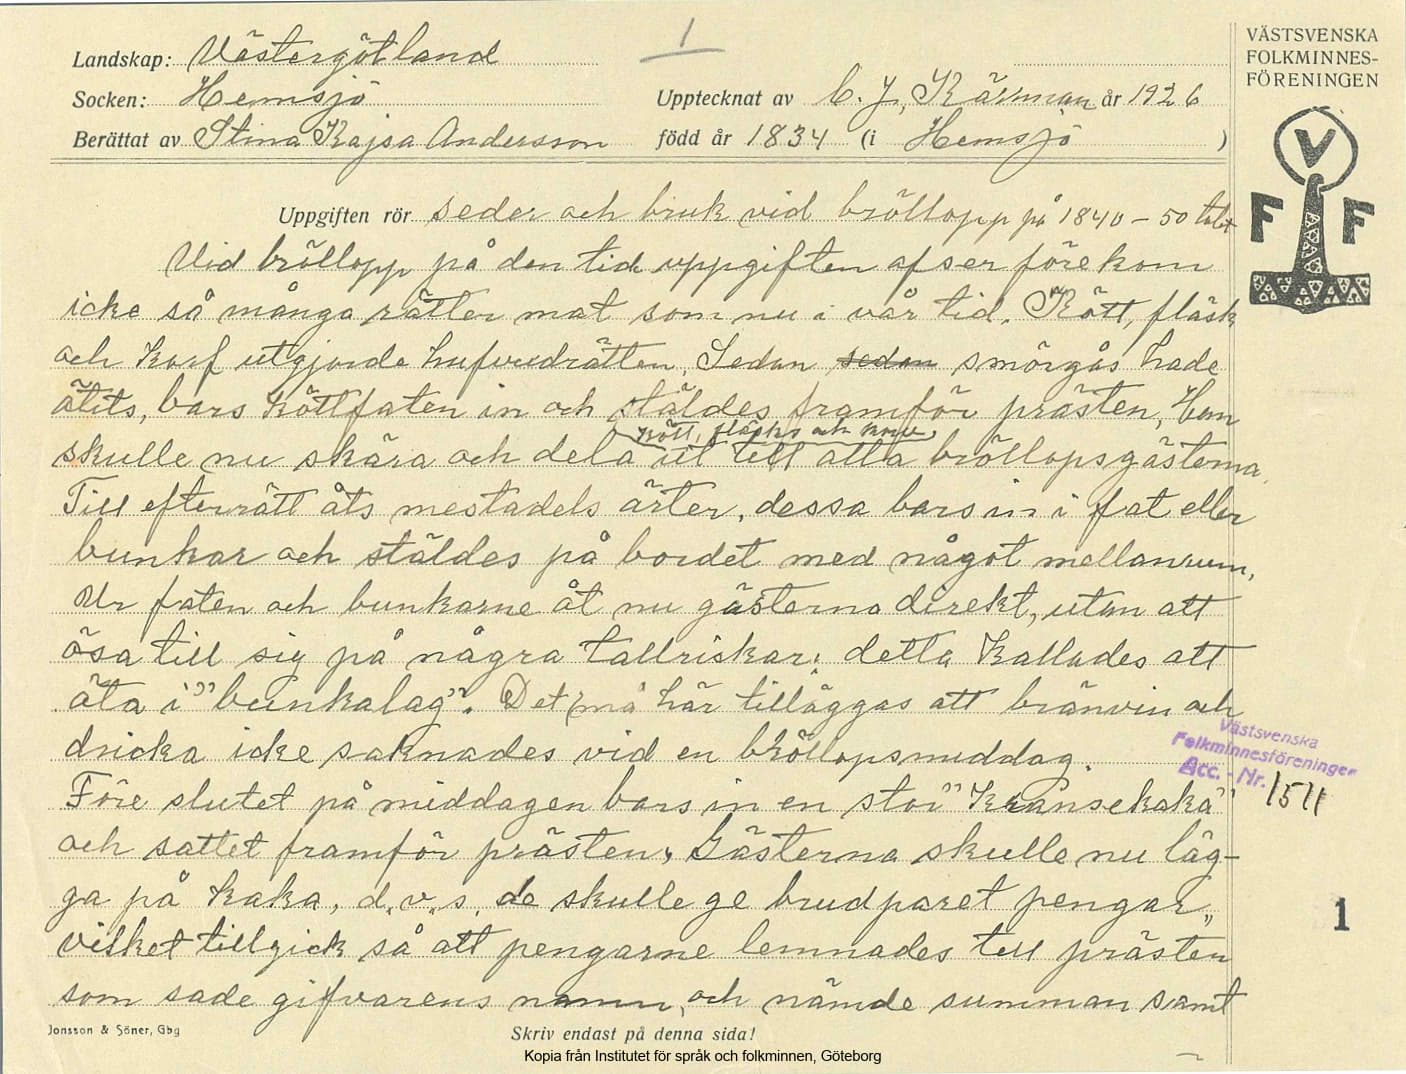 1
VÄSTSVENSKA
FOLKMINNES-
FÖRENINGEN
V
F F
Landskap: Västergötland
Socken: Hemsjö
Upptecknat av C. J. Kärnman år 1926
Berättat av Stina Kajsa Andersson född år 1834 (i Hemsjö )
Uppgiften rör seder och bruk vid bröllopp på 1840-50 talet
Vid bröllopp på den tid uppgiften afser förekom
icke så många rätter mat som nu i vår tid. Kött, fläsk
och korf utgjorde hufvudrätten. Sedan sedan smörgås hade
ätits, bars köttfaten in och ställdes framför prästen, Han
kött, fläsk och korv
skulle nu skära och dela ut till alla bröllopsgästerna,
Till efterrätt åts mestadels ärter, dessa bars in i fat eller
bunkar och stäldes på bordet med något mellanrum,
Ur faten och bunkarne åt nu gästerna direkt, utan att
ösa till sig på några tallriskar; detta kallades att
äta i "bunkalag". Det må här tilläggas att bränvin och
dricka icke saknades vid en bröllopsmiddag.
Före slutet på middagen bars in en stor "Kransekaka"
och sattet framför prästen, Gästerna skulle nu läg-
ga på kaka, d.v.s. de skulle ge brudparet pengar,
vilket tillgick så att pengarne lemnades till prästen
som sade gifvarens namn, och nämde summan samt
Västsvenska
Folkminnesföreningen
Acc. - Nr. 1511
1
Jonsson & Söner, Gbg
Skriv endast på denna sida!
Kopia från Institutet för språk och folkminnen, Göteborg